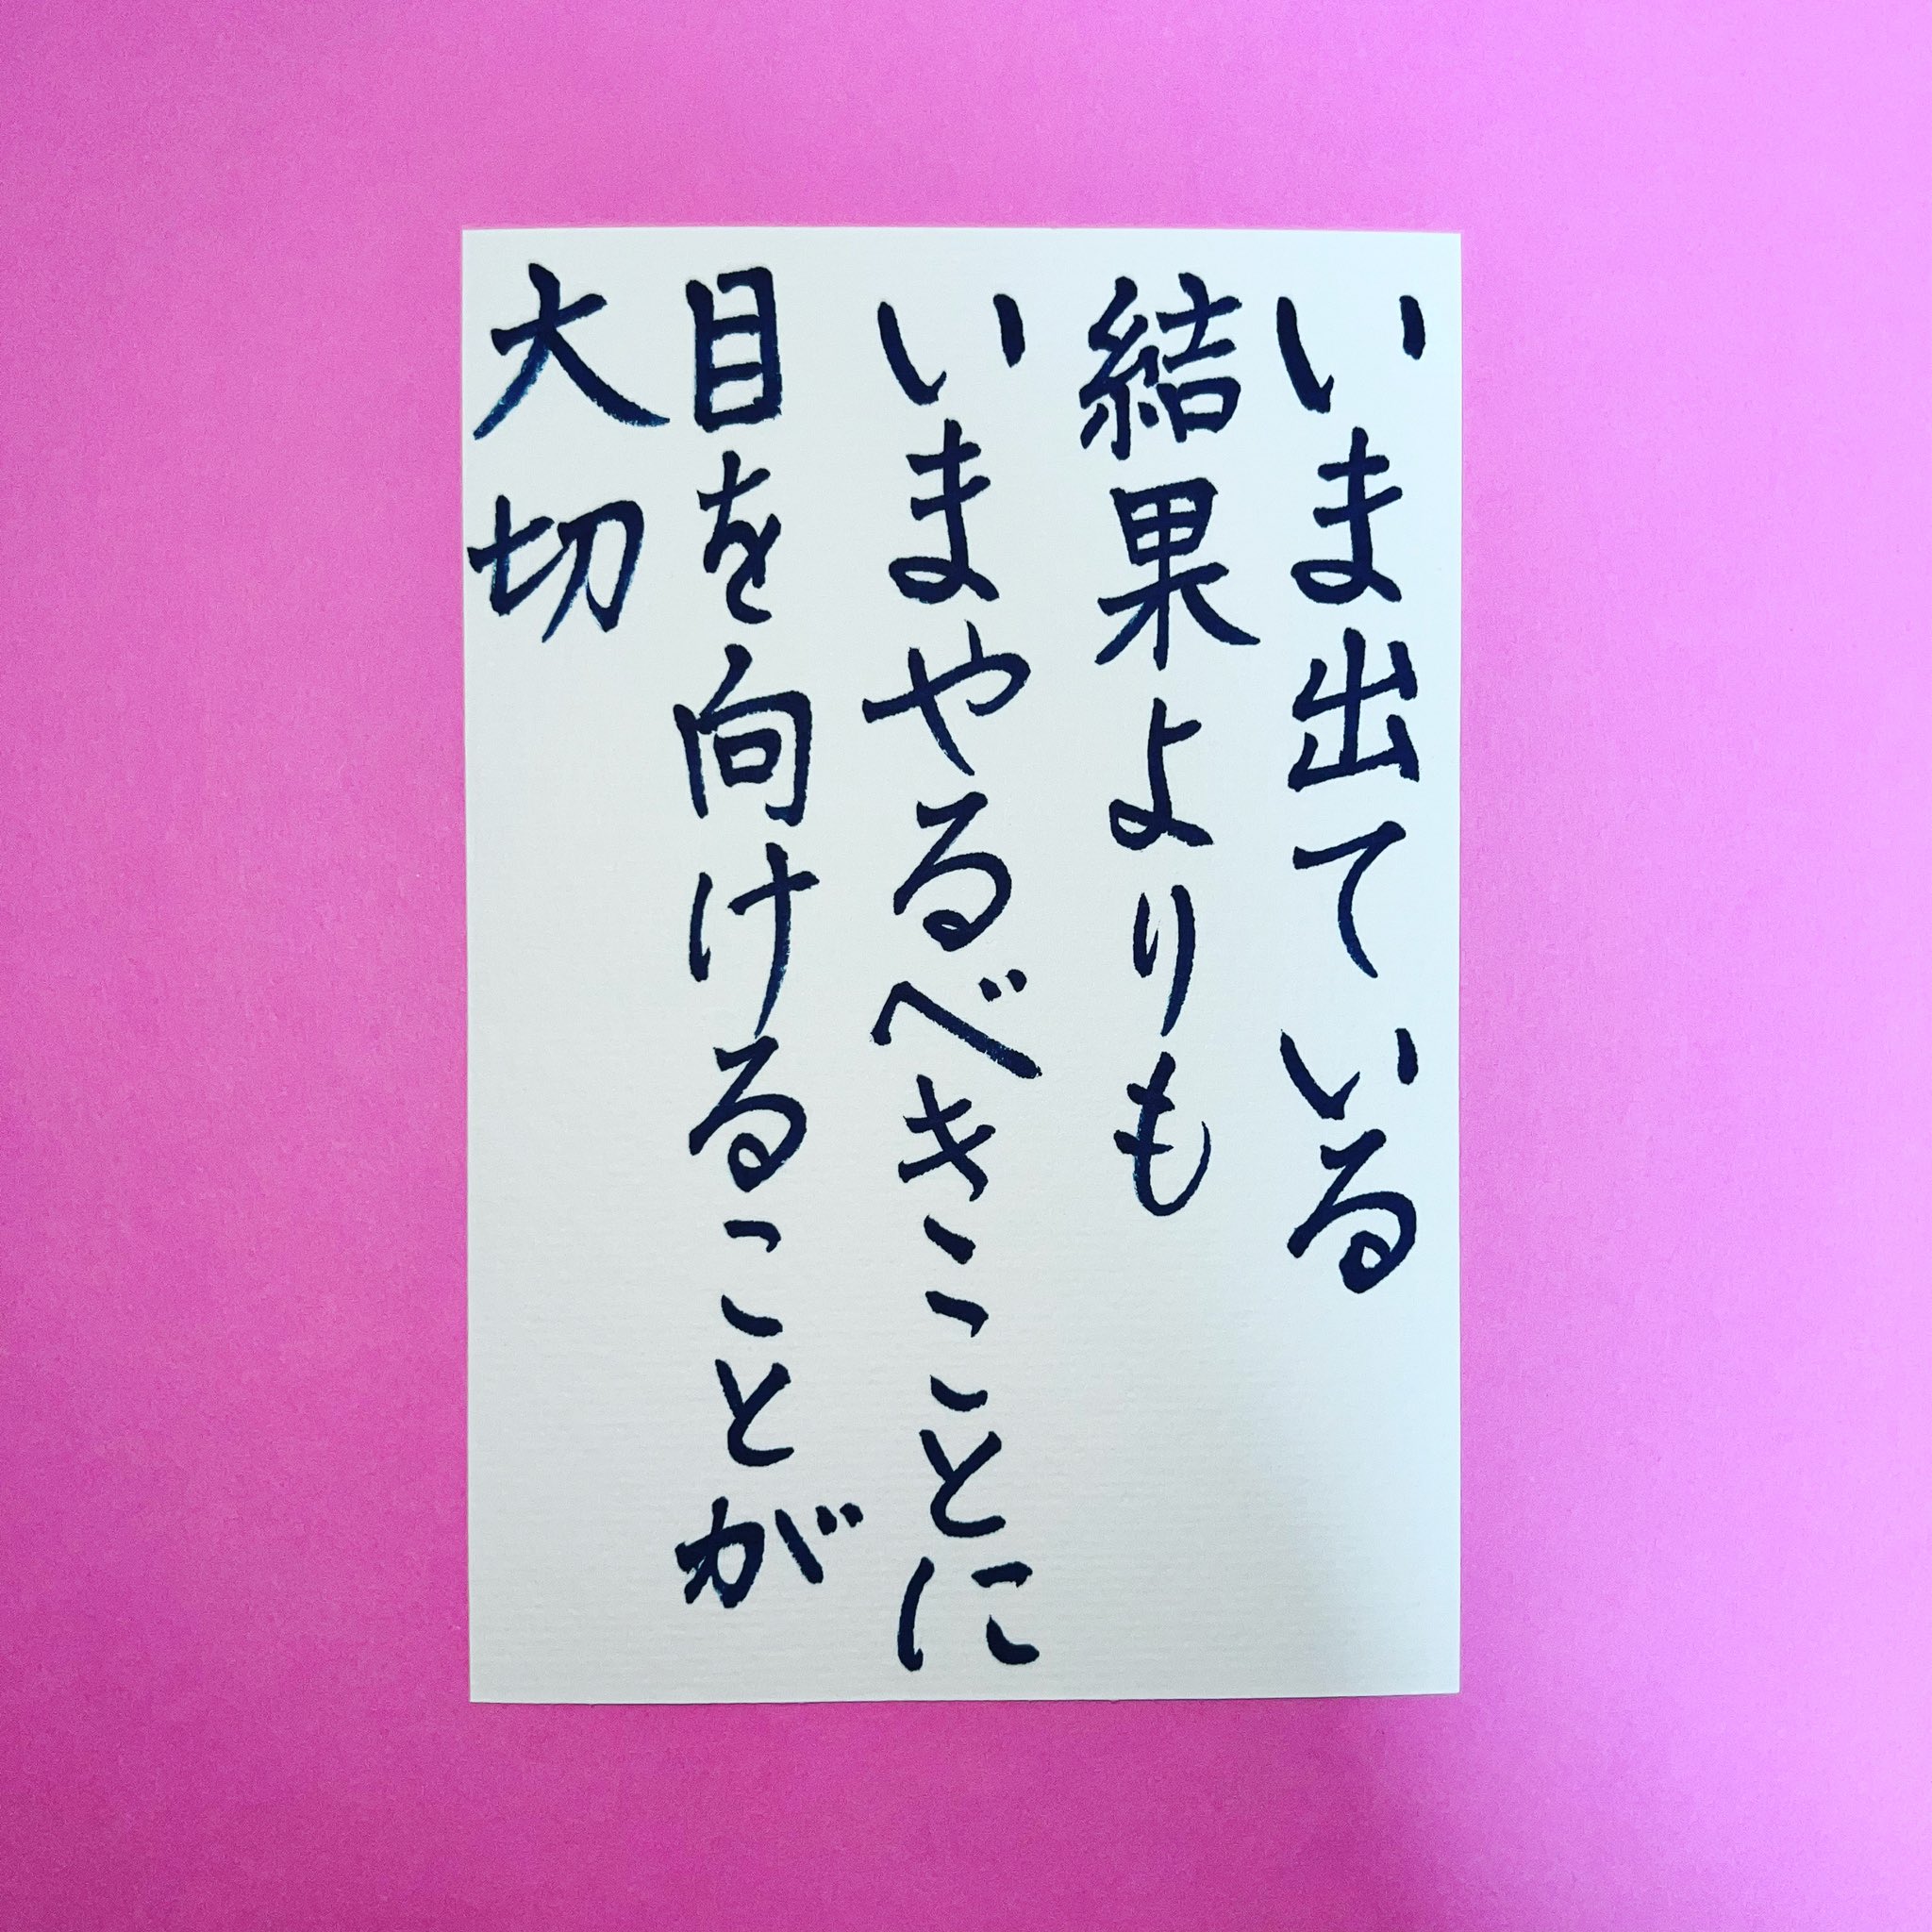 いま出ている
結果よりも
いまやるべきことに
目を向けることが
大切